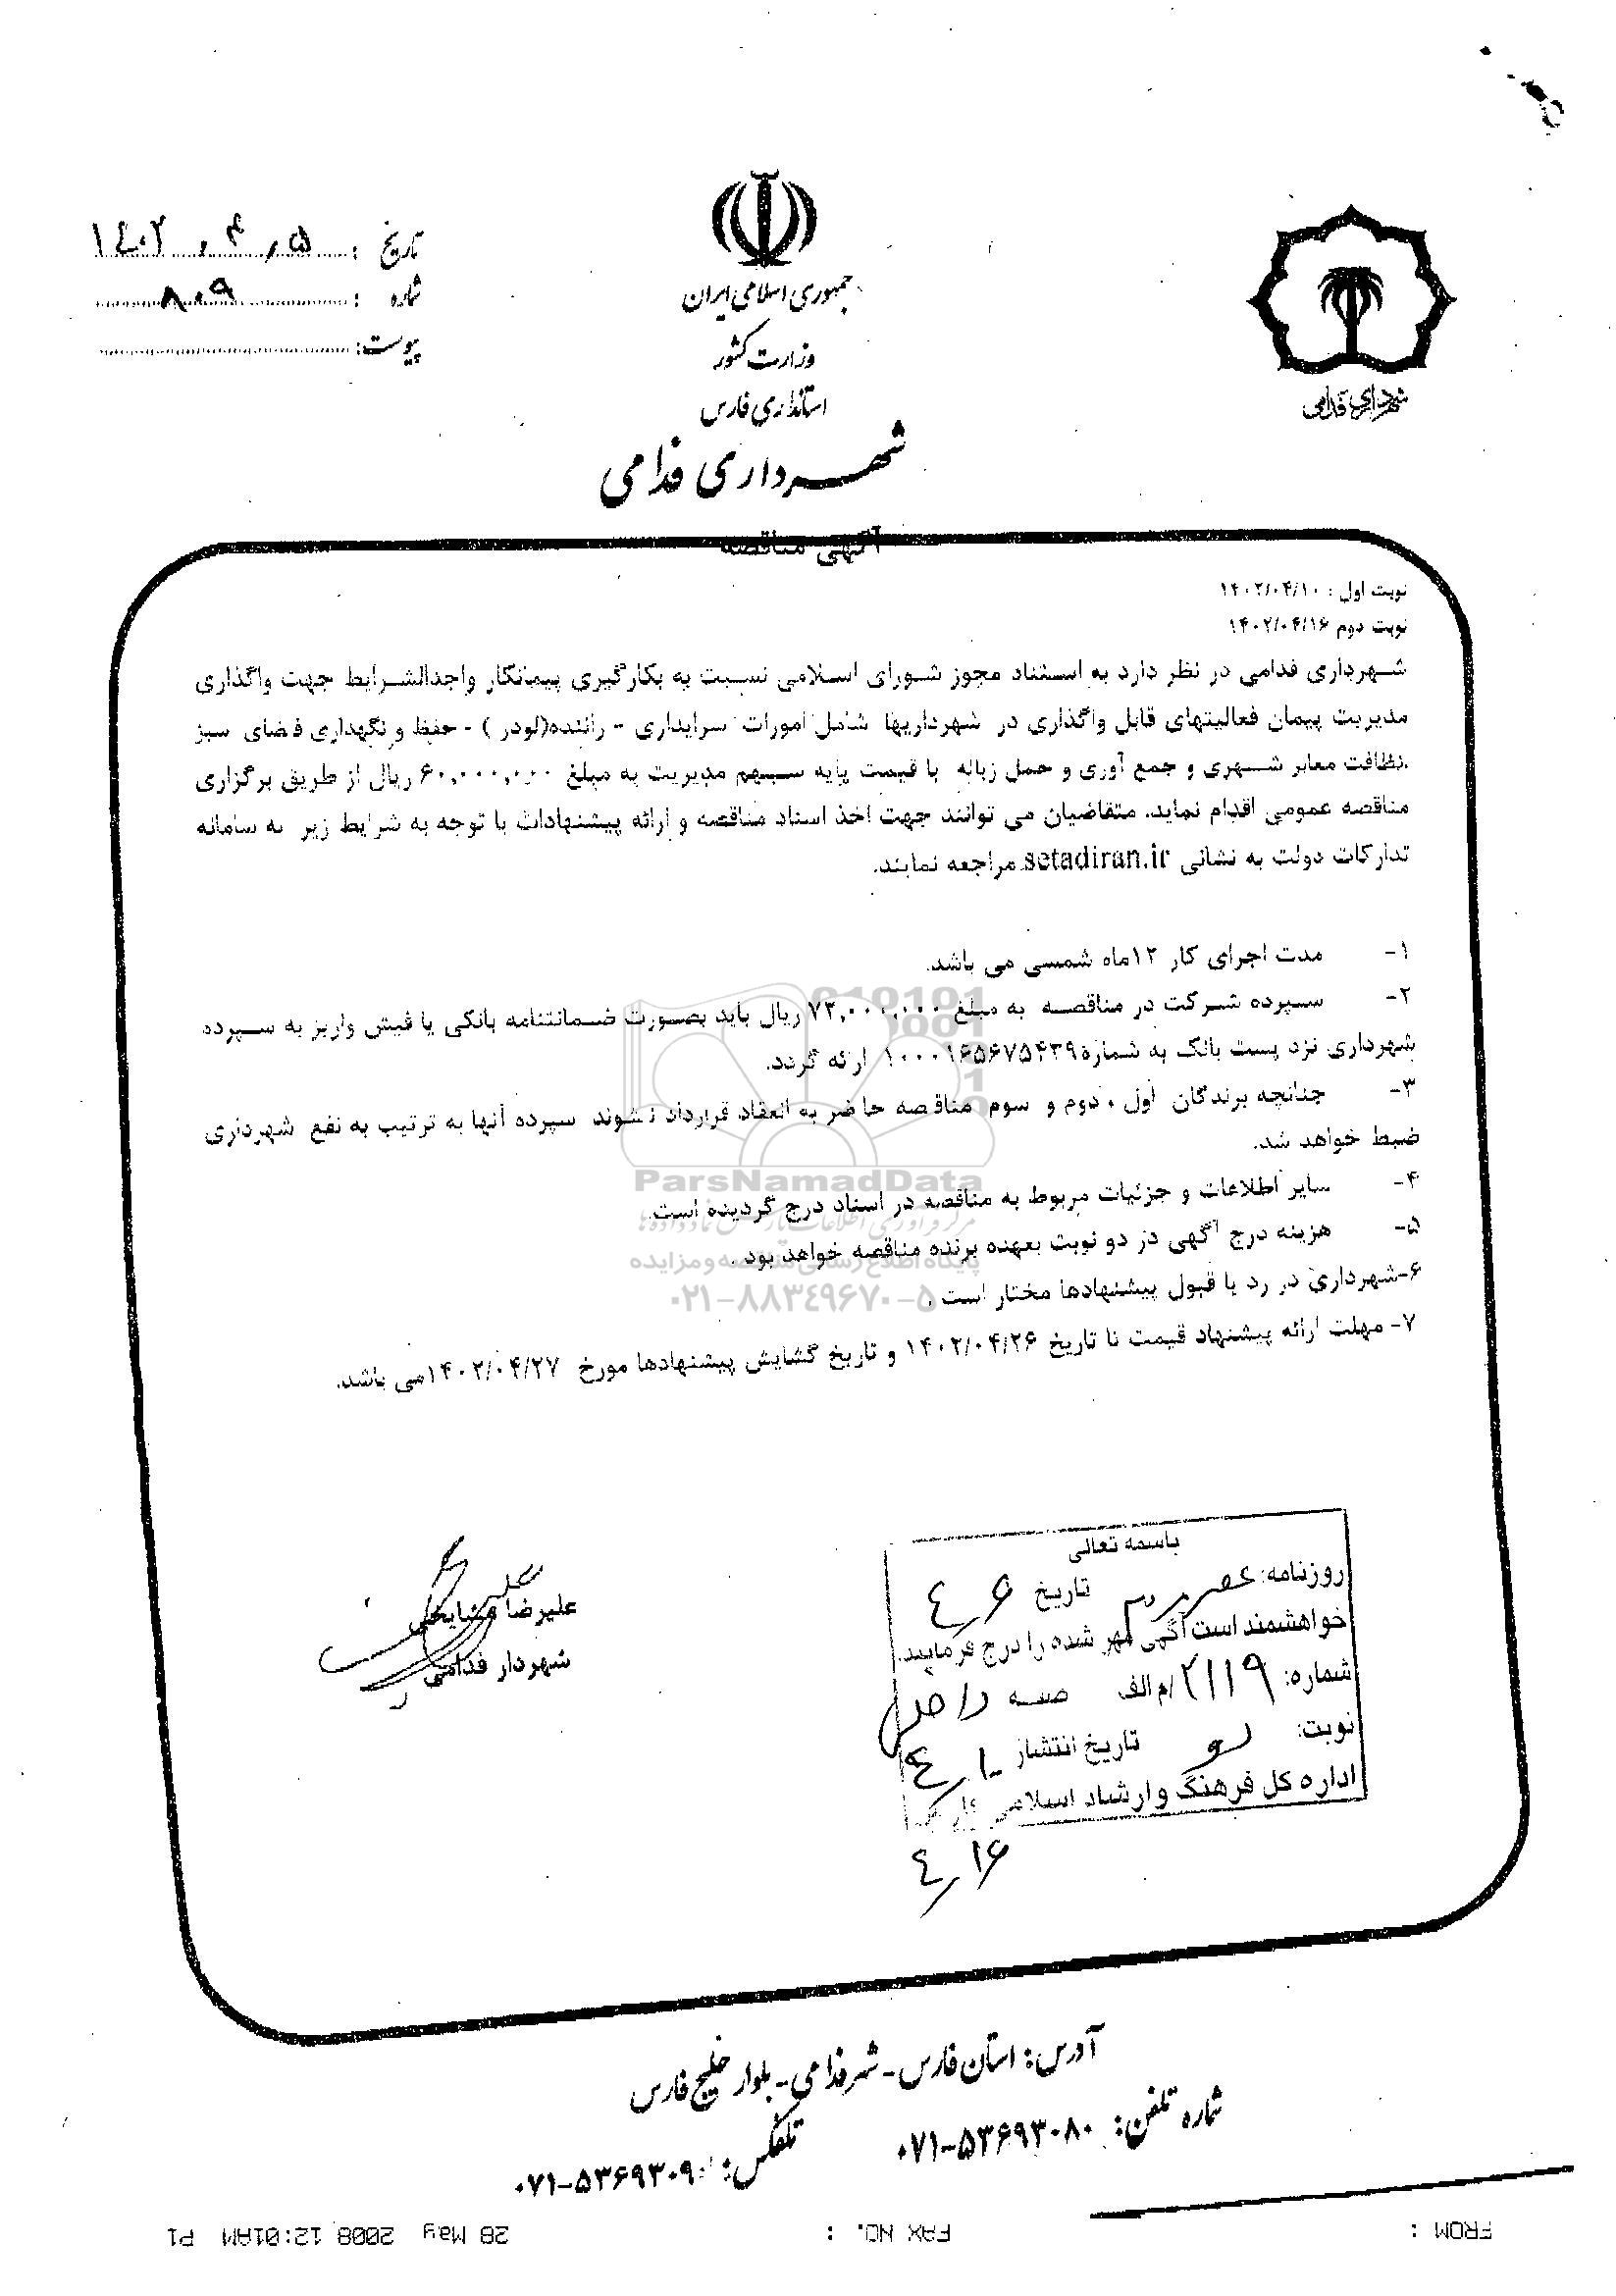 تاریخ : ۱۴۰۲٫۴٫۵
شماره : ۸۰۹
پیوست:
جمهوری اسلامی ایران
وزارت کشور
استانداری فارس
شهرداری فدامی
شهرداری فدامی
آگهی مناقصه
نوبت اول : ۱۴۰۲/۰۴/۱۰
نوبت دوم ۱۴۰۲/۰۴/۱۶
شهرداری فدامی در نظر دارد به استناد مجوز شورای اسلامی نسبت به بکارگیری پیمانکار واجدالشرایط جهت واگذاری
مدیریت پیمان فعالیتهای قابل واگذاری در شهرداریها شامل امورات سرایداری - راننده(لودر ) - حفظ و نگهداری فضای سبز
.نظافت معابر شهری و جمع آوری و حمل زباله با قیمت پایه سهم مدیریت به مبلغ ۶۰,۰۰۰,۰۰۰ ریال از طریق برگزاری
مناقصه عمومی اقدام نماید. متقاضیان می توانند جهت اخذ اسناد مناقصه و ارائه پیشنهادات با توجه به شرایط زیر به سامانه
تدارکات دولت به نشانی setadiran.ir مراجعه نمایند.
۱- مدت اجرای کار ۱۲ماه شمسی می باشد.
۲- سپرده شرکت در مناقصه به مبلغ ۷۳,۰۰۰,۰۰۰ ریال باید بصورت ضمانتنامه بانکی یا فیش واریز به سپرده
شهرداری نزد پست بانک به شماره ۱۰۰۰۱۶۵۶۷۵۴۳۹ ارائه گردد.
۳- چنانچه برندگان اول ، دوم و سوم مناقصه حاضر به انعقاد قرارداد نشوند سپرده آنها به ترتیب به نفع شهرداری
ضبط خواهد شد.
۴- سایر اطلاعات و جزئیات مربوط به مناقصه در اسناد درج گردیده است.
۵- هزینه درج آگهی در دو نوبت بعهده برنده مناقصه خواهد بود .
۶-شهرداری در رد یا قبول پیشنهادها مختار است .
۷- مهلت ارائه پیشنهاد قیمت تا تاریخ ۱۴۰۲/۰۴/۲۶ و تاریخ گشایش پیشنهادها مورخ ۱۴۰۲/۰۴/۲۷می باشد.
ParsNamadData
پایگاه اطلاع رسانی مناقصه و مزایده
۰۲۱-۸۸۳۴۹۶۷۰-۵
باسمه تعالی
روزنامه: عصر مردم تاریخ ۴٫۶
خواهشمند است آگهی مهر شده را درج فرمایید.
شماره: ۲۱۱۹/م الف
نوبت: دو تاریخ انتشار ۴٫۱۰
اداره کل فرهنگ و ارشاد اسلامی
۴٫۱۶
علیرضا مشایخی
شهردار فدامی
آدرس: استان فارس - شهر فدامی - بلوار خلیج فارس
شماره تلفن: ۰۷۱-۵۳۶۹۳۰۸۰
تلفکس: ۰۷۱-۵۳۶۹۳۰۹۰
FROM :
FAX NO. :
28 May 2008 12:01AM P1